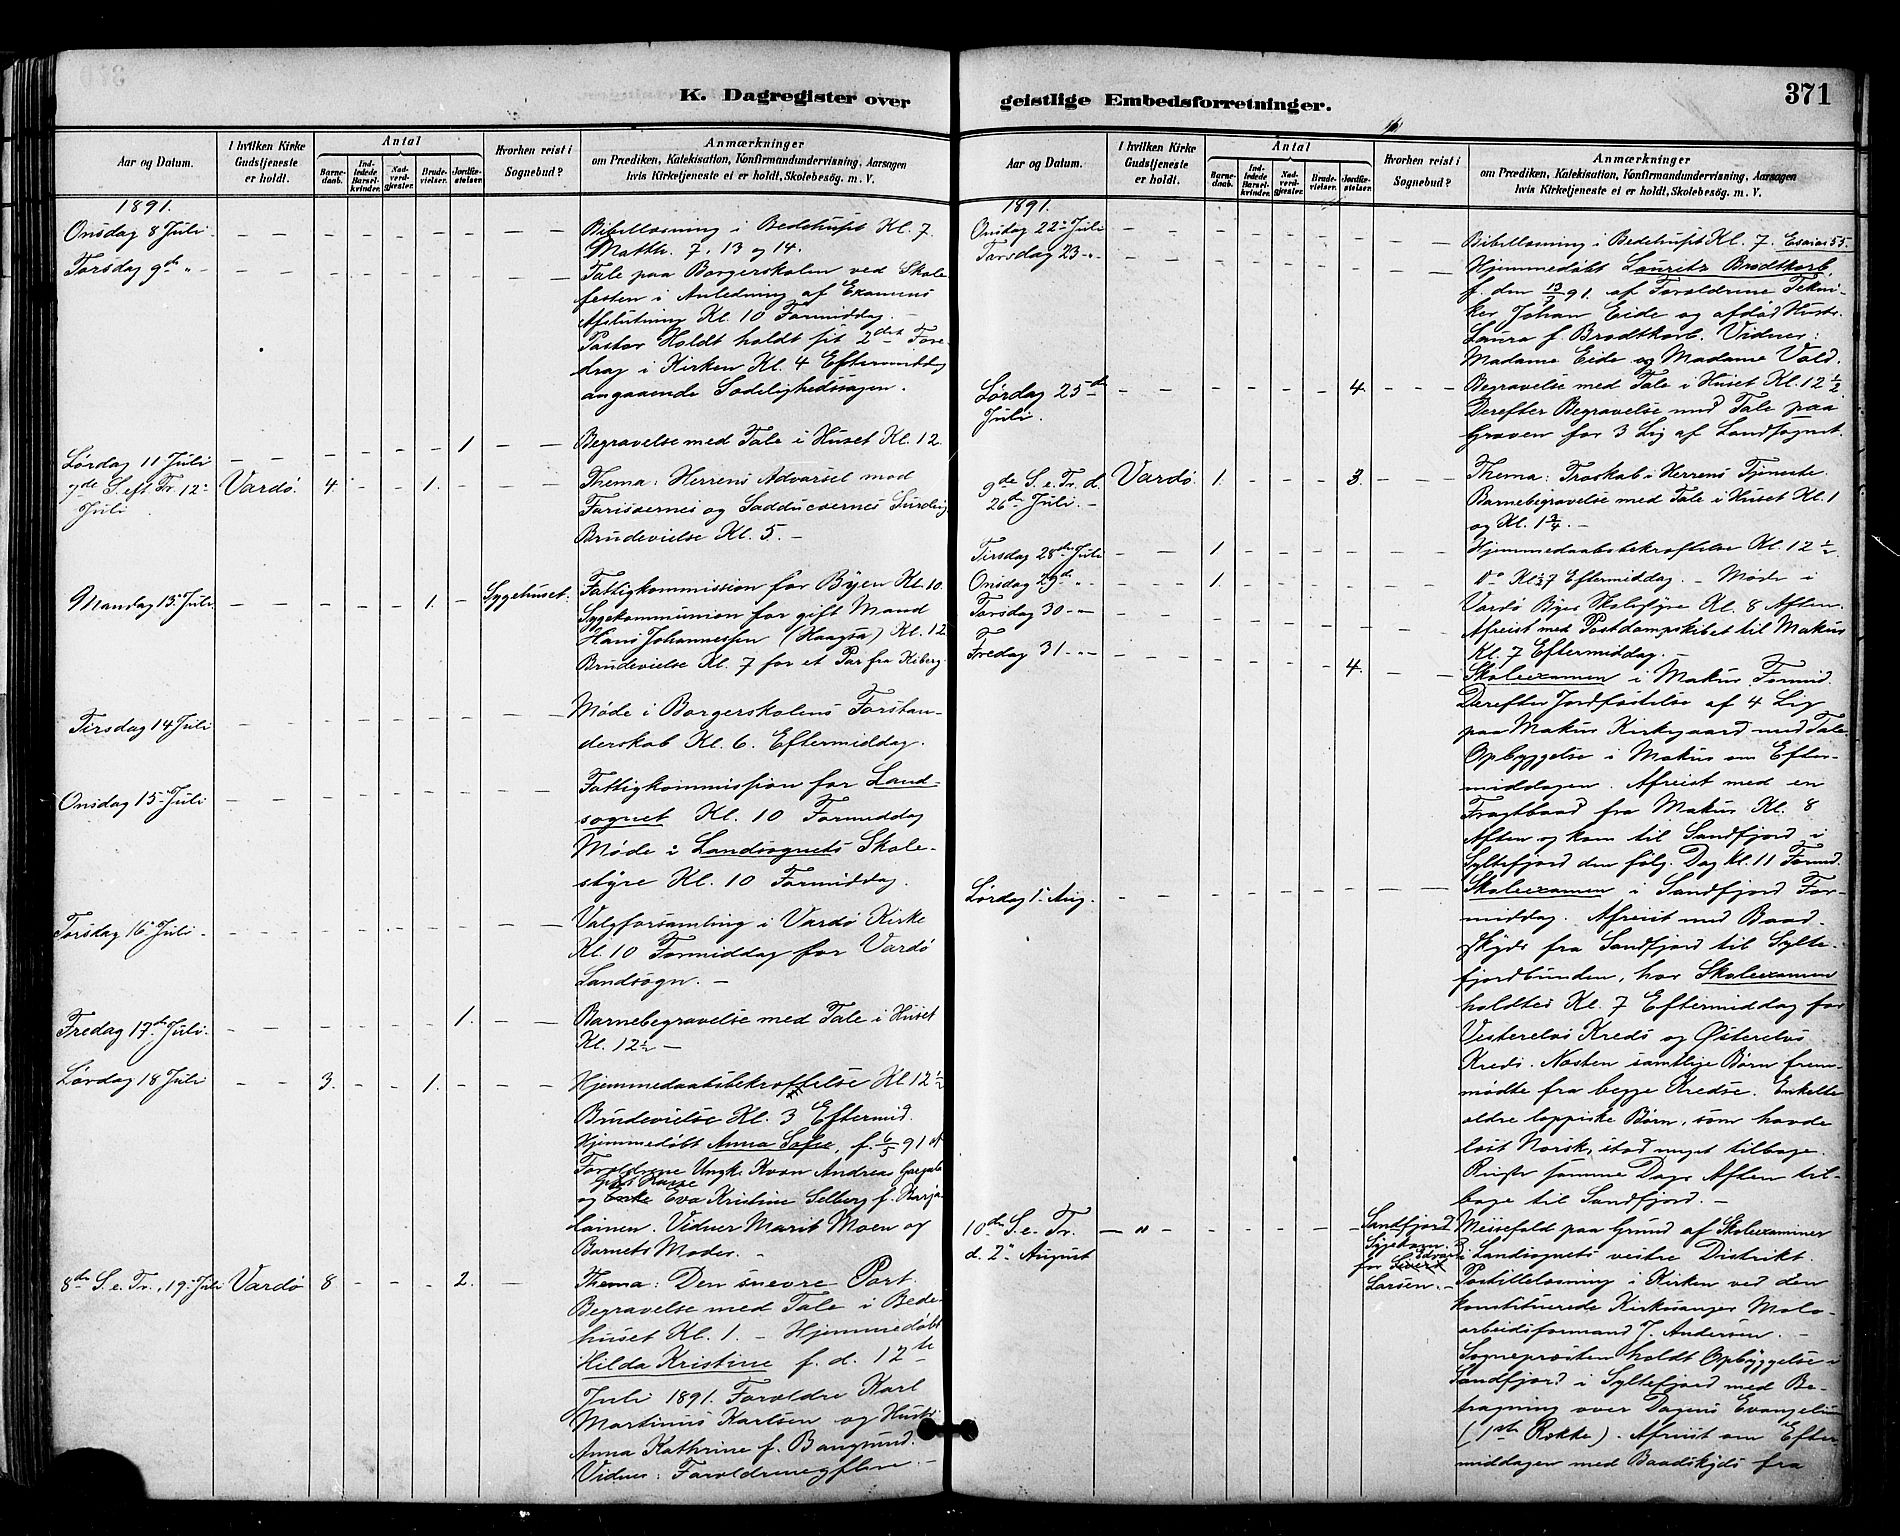 K. Dagregister over
geistlige Embedsforretninger.
371
Aar og Datum.
I hvilken Kirke Gudstjeneste er holdt.
Antal
Barnedaab.
Indledede Barselkvinder.
Nadverdgjester.
Brudevielser.
Jordfæstelser.
Hvorhen reist i Sognebud?
Anmærkninger
om Prædiken, Katekisation, Konfirmandundervisning, Aarsagen
hvis Kirketjeneste ei er holdt, Skolebesög. m. V.
1891.
Onsdag 8 Juli. Bibellæsning i Bedehuset Kl. 7.
Matth. 7. 13 og 14.
Torsdag 9de " Tale paa Borgerskolen ved Skole
festen i Anledning af Examens
Afslutning Kl. 10 Formiddag.
Pastor Holdt holdt sit 2det Fore
drag i Kirken Kl. 4 Eftermiddag
angaaende Sædelighedssagen.
Lørdag 11 Juli 1 Begravelse med Tale i Huset Kl. 12.
7de S. eft Tr. 12- Vardö. 4. 1. Thema: Herrens Advarsel mod
Juli Farisæernes og Sadducæernes Surdeig
Brudevielse Kl. 5. –
Mandag 13- Juli 1. Sygehuset. Fattigkommission for Byen Kl. 10.
Sygekommunion for gift Mand
Hans Johannessen (Haagsa) Kl. 12
Brudevielse Kl. 7 for et Par fra Kiberg
Tirsdag 14 Juli Møde i Borgerskolens Forstan-
derskab Kl. 6. Eftermiddag.
Onsdag 15- Juli Fattigkommission for Land-
sognet Kl. 10 Formiddag
Møde i Landsognets Skole-
styre Kl. 10 Formiddag.
Torsdag 16- Juli Valgforsamling i Vardö Kirke
Kl. 10 Formiddag for Vardö
Landsogn. –
Fredag 17de Juli 1. Barnebegravelse med Tale i Huset
Kl. 12½ –
Lørdag 18 Juli 3. 1. Hjemmedaabsbekræftelse Kl 12 ½
Brudevielse Kl. 3 Eftermid.
Hjemmedøbt Anna Sofie, f. 6/5 91 af
Forældrene Ungk. Kvæn Andreas
og Enke Eva Kristine Selberg f.
lainen. Vidner Marit Moen og
Barnets Moder. –
8de S. e. Tr., 19- Juli Vardö 8 2. Thema: Den snevre Port.
Begravelse med Tale i Bede-
huset Kl. 1. – Hjemmedøbt
Hilda Kristine f. d. 12te
Juli 1891. Forældre Karl
Martinius Karlsen og Hustr.
Anna Kathrine f. Bangsund.
Vidner: Forældrene
Aar og Datum.
I hvilken Kirke Gudstjeneste er holdt.
Antal
Barnedaab.
Indledede Barselkvinder.
Nadverdgjester.
Brudevielser.
Jordfæstelser.
Hvorhen reist i Sognebud?
Anmærkninger
om Prædiken, Katekisation, Konfirmandundervisning, Aarsagen
hvis Kirketjeneste ei er holdt, Skolebesög. m. V.
1891.
Onsdag 22- Juli Bibellæsning i Bedehuset Kl. 7. Esaias 55.
Torsdag 23 - " - Hjemmedøbt Lauritz Brodtkorb,
f. den 13/7 91. af Forældrene Tekni-
ker Johan Eide og afdød Hustr.
Laura f. Brodtkorb. Vidner:
Madame Eide og Madame Vold.
Lørdag 25de 4. Begravelse med Tale i Huset Kl. 12 ½
Juli. Derefter Begravelse med Tale paa
Graven for 3 Lig af Landsognet.
9de S. e. Tr. d. Vardö. 1. 3. Thema: Troskab i Herrens Tjeneste.
26de Juli. – Barnebegravelse med Tale i Huset Kl. 1
og Kl. 1 ¾. –
Tirsdag 28de Juli 1 Hjemmedaabsbekræftelse Kl. 12 ½
Onsdag 29de " 1. do Kl. ½7 Eftermiddag. – Møde i
Torsdag 30 - " - Vardö Byes Skolestyre Kl. 8 Aften.
Afreist med Postdampskibet til Makur
Fredag 31 - " - Kl. 7 Eftermiddag. –
4. Skoleexamen i Makur Formid.
Derefter Jordfæstelse af 4 Lig
paa Makur Kirkegaard med Tale.
Opbyggelse i Makur om Efter-
middagen. Afreist med en
Fragtbaad fra Makur Kl. 8
Aften og kom til Sandfjord i
Syltefjord den følg. Dag Kl. 11 Formid.
Lørdag 1- Aug. Skoleexamen i Sandfjord For-
middag. Afreist med Baad-
skyds fra Sandfjord til Sylte-
fjordbunden, hvor Skoleexamen
holdtes Kl. 7 Eftermiddag for
Vesterelvs Kreds og Østerelvs
Kreds. Næsten samtlige Børn frem-
mödte fra begge Kredse. Enkelte
ældre lappiske Børn, som havde
læst Norsk, stod meget tilbage.
Reiste samme Dags Aften til-
bage til Sandfjord. –
10de S. e. Tr. – " Sandfjord Messefald paa Grund af Skoleexaminer
d. 2- August i Landsognets vestre Distrikt.
for Edvard
Larsen. – Postillelæsning i Kirken ved den
konstituerede Kirkesanger Molo-
arbeidsformand J. Andersen. –
Sognepræsten holdt Opbyggelse i
Sandfjord i Syltefjord med Be-
tragtning over Dagens Evangelium
(1ste Række). Afreist om Efter-
middagen med Baadskyds fra